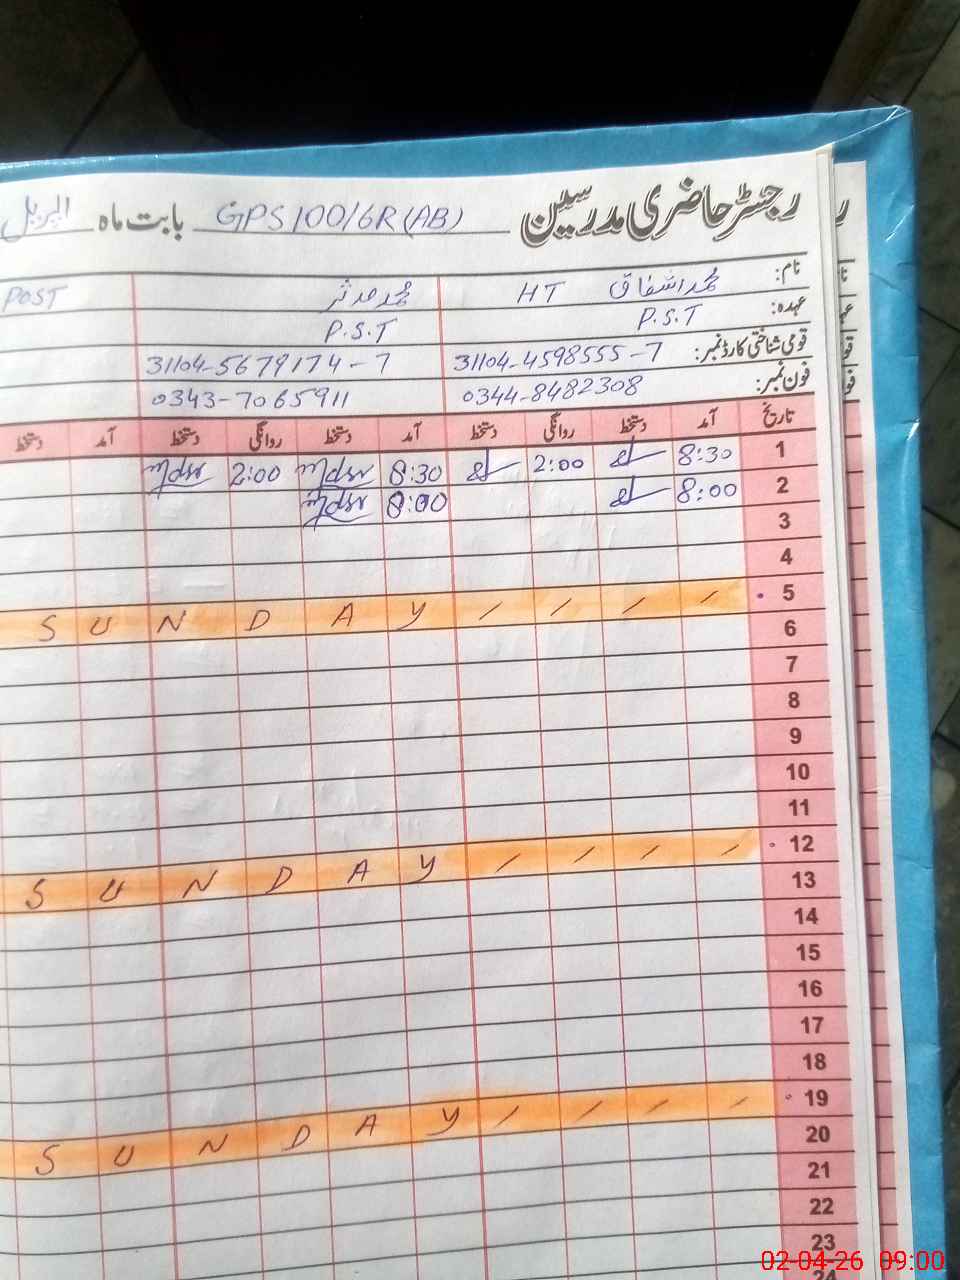 رجسٹر حاضری مدرسین GPS 100/6R(AB) بابت ماہ اپریل
نام: محمد اشفاق HT محمد مدثر POST
عہدہ: P.S.T P.S.T
قومی شناختی کارڈ نمبر: 31104-4598555-7 31104-5679174-7
فون نمبر: 0344-8482308 0343-7065911
تاریخ آمد دستخط روانگی دستخط آمد دستخط روانگی دستخط آمد دستخط
1 8:30 2:00 8:30 2:00
2 8:00 8:00
3
4
5 / / / / S U N D A Y
6
7
8
9
10
11
12 / / / / S U N D A Y
13
14
15
16
17
18
19 / / / / S U N D A Y
20
21
22
23
24
02-04-26 09:00